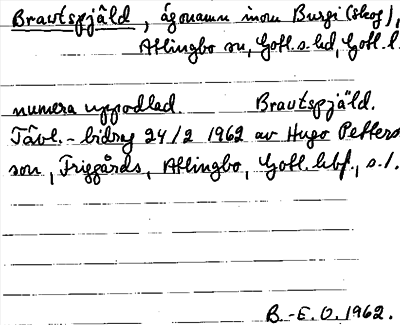 Brautspjäld, ägonamn inom Burgi (skog),
Atlingbo sn, Gotl. s. hd, Gotl. l.
numera uppodlad. Brautspjäld.
Tävl.-bidrag 24/2 1962 av Hugo Petters
son, Friggårds, Atlingbo, Gotl. hbf., s. l.
B.-E.O. 1962.